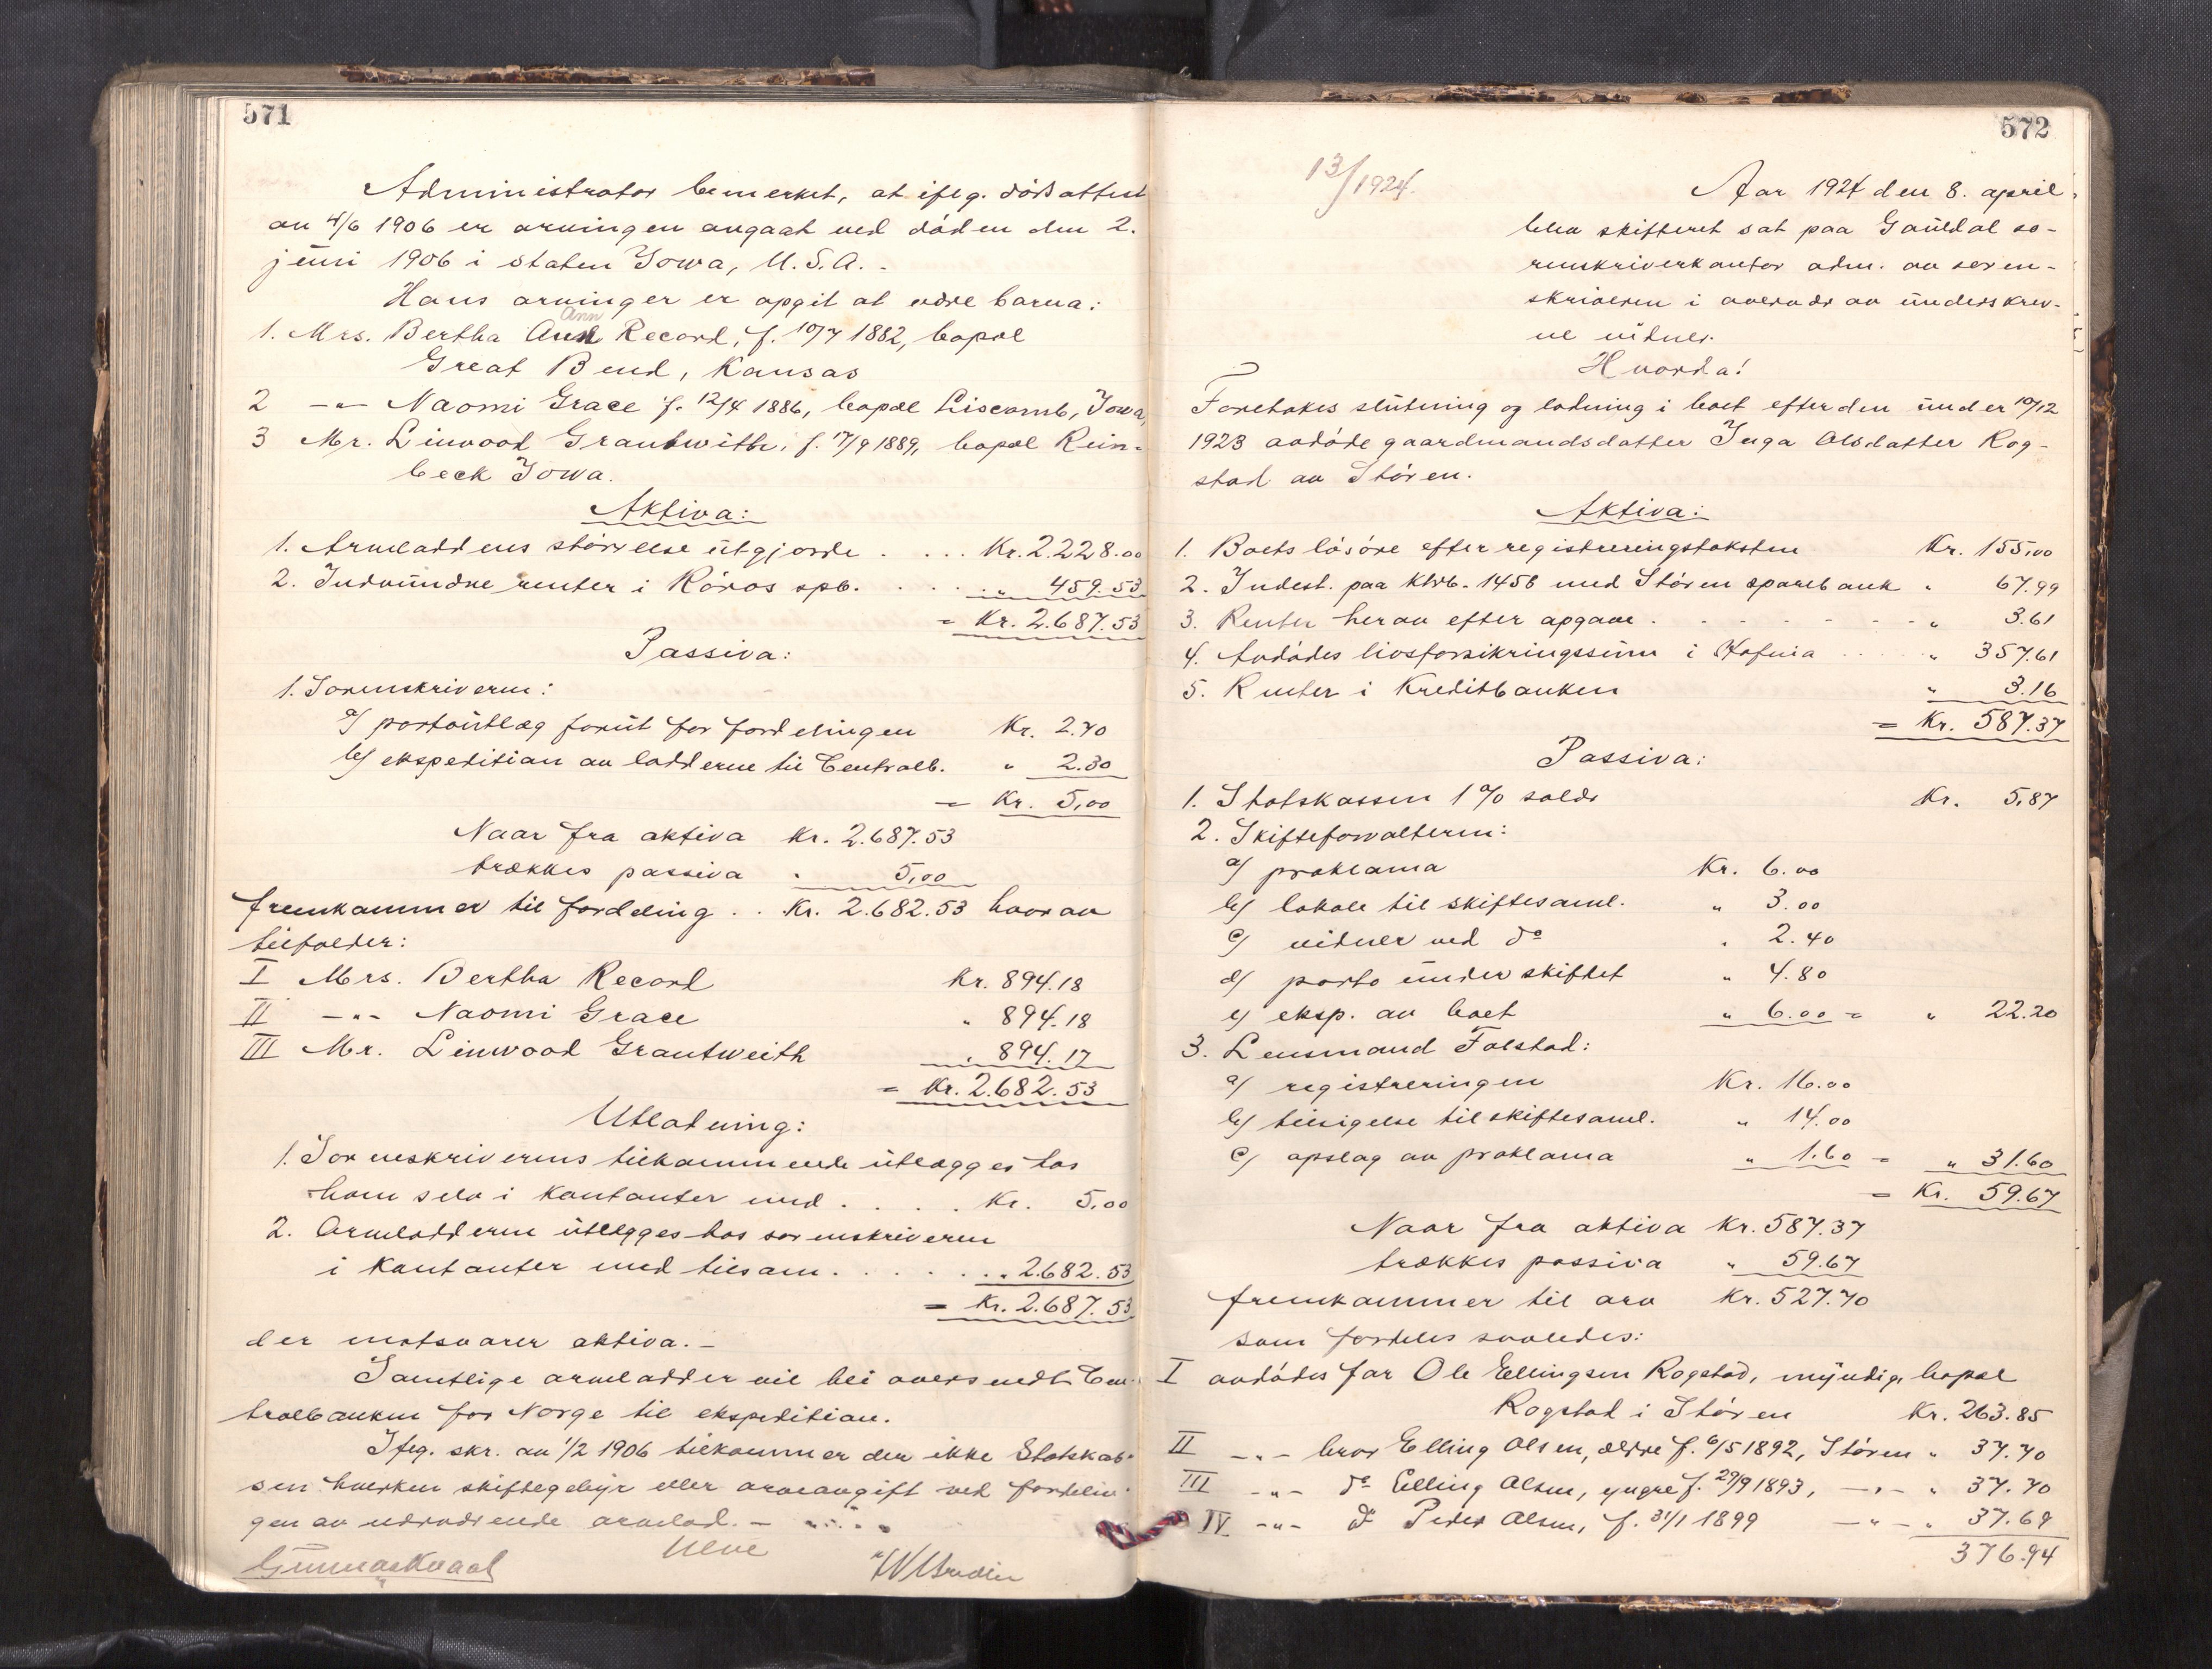 571
Administrator bemerket, at iflg. dödsattest
av 4/6 1906 er arvingen avgaat ved döden den 2.
juni 1906 i staten Iowa, U.S.A. -
Hans arvinger er opgit at være barna:
Ann
1. Mrs. Bertha Ann Record, f. 10/7 1882, bopæl
Great Bend, Kansas
2 -"- Naomi Grace f. 12/4 1886, bopæl Liscomb, Iowa,
3 Mr. Linwood Grantwith, f. 17/9 1889, bopæl Rein-
beck Iowa.
Aktiva:
1. Arveloddens störrelse utgjorde . . . . Kr. 2.228.00
2. Indvundne renter i Röros spb. . . . . " 459.53
= Kr. 2.687.53
Passiva:
1. Sorenskriveren:
a/ portoutlæg forut for fordelingen Kr. 2.70
b/ ekspedition av lodderne til Centralb. " 2.30
= Kr. 5,00
Naar fra aktiva Kr. 2.687.53
trækkes passiva " 5,00
fremkommer til fordeling . . Kr. 2.682.53 hvorav
tilfalder:
I Mrs. Bertha Record Kr. 894.18
II -"- Naomi Grace " 894.18
III Mr. Linwood Grantweith " 894.17
= Kr. 2.682.53
Utlodning:
1. Sorenskriverens tilkommende utlægges hos
ham selv i kontanter med . . . . Kr. 5,00
2. Arvelodderne utlægges hos sorenskriveren
i kontanter med tilsam. . . . . . " 2.682.53
= Kr. 2.687.53
der motsvarer aktiva. -
Samtlige arvelodder vil bli oversendt Cen-
tralbanken for Norge til ekspedition.
Iflg. skr. av 1/2 1906 tilkommer der ikke Statskas-
sen hverken skiftegebyr eller arveavgift ved fordelin-
gen av nedværende arvelod. -
Gunnar Kvaal
572
13/1924.
Aar 1924 den 8. april
blev skifteret sat paa Gauldal so-
renskriverkontor adm. av soren-
skriveren i overvær av underskrev-
ne vidner.
Hvorda!
Foretokes slutning og lodning i boet efter den under 10/12
1923 avdöde gaardmandsdatter Inga Olsdatter Rog-
stad av Stören.
Aktiva:
1. Boets lösöre efter registreringstaksten Kr. 155,00
2. Indest. paa ktrb. 1458 med Stören sparebank " 67.99
3. Renter herav efter opgave . - - - - - - " 3.61
4. Avdödes livsforsikringssum i Hafnia . . . . " 357.61
5. Renter i Kreditbanken " 3.16
= Kr. 587.37
Passiva:
1. Statskassen 1 % saldo Kr. 5,87
2. Skifteforvalteren:
a/ proklama Kr. 6.00
b/ lokale til skiftesaml. " 3.00
c/ vidner ved do " 2.40
d/ porto under skiftet " 4.80
e/ eksp. av boet " 6.00 = " 22.20
3. Lensmand Folstad:
a/ registreringen Kr. 16.00
b/ tilsigelse til skiftesaml. " 14.00
c/ opslag av proklama " 1.60 = " 31.60
= Kr. 59.67
Naar fra aktiva Kr. 587.37
trækkes passiva " 59.67
fremkommer til arv Kr. 527.70
som fordeles saaledes:
I avdödes far Ole Ellingsen Rogstad, myndig, bopæl
Rogstad i Stören Kr. 263.85
II -"- bror Elling Olsen, ældre f. 6/5 1892, Stören " 37.70
III -"- do Elling Olsen, yngre f. 29/9 1893, -"- " 37.70
IV -"- do Peder Olsen, f. 31/1 1899 -"- " 37.69
376.94